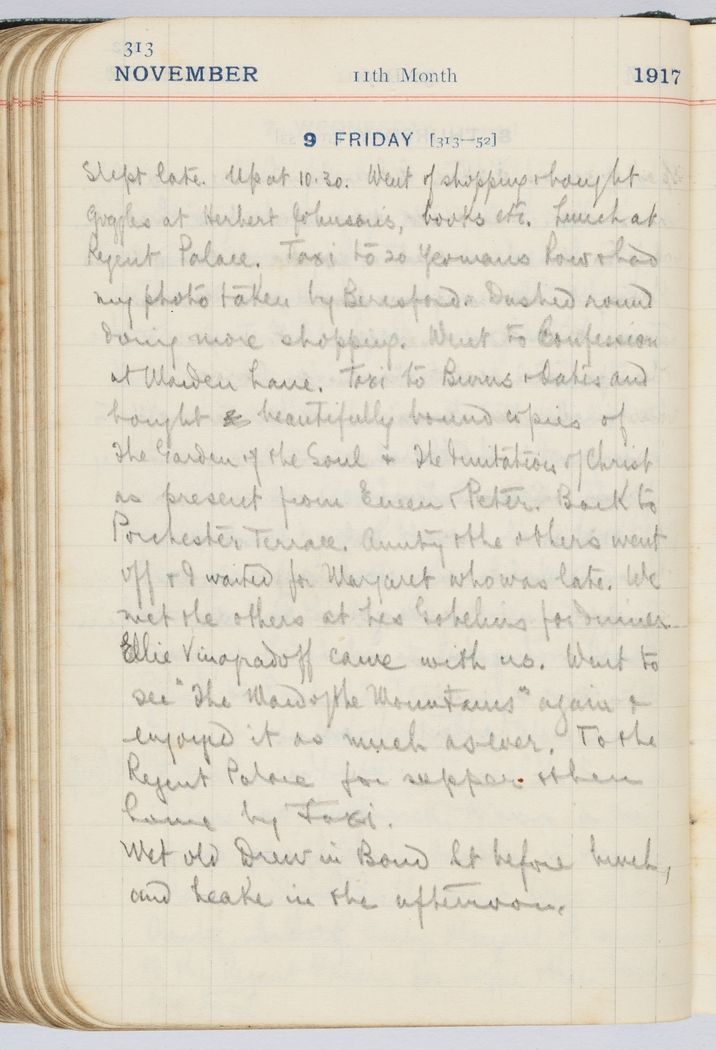 313
NOVEMBER 11th Month 1917
9 FRIDAY [313—52]
Slept late. Up at 10.30. Went off shopping & bought
Goggles at Herbert Johnson's, books etc. Lunch at
Regent Palace. Taxi to 20 Yeomans Row & had
my photo taken by Beresford. Dashed round
doing more shopping. Went to Confession
at Maiden Lane. Taxi to Burns & Oates and
bought beautifully bound copies of
The Garden of the Soul & The Imitation of Christ
as present from & Peter. Back to
Porchester Terrace. Aunty & the others went
off & I waited for Margaret who was late. We
met the others at Les Gobelins for dinner
Ellie Vinogradoff came with us. Went to
see "The Maid of the Mountains" again &
enjoyed it as much as ever. To the
Regent Palace for supper & then
home by Taxi.
Met old Drew in Bond St before lunch,
and Leake in the afternoon.